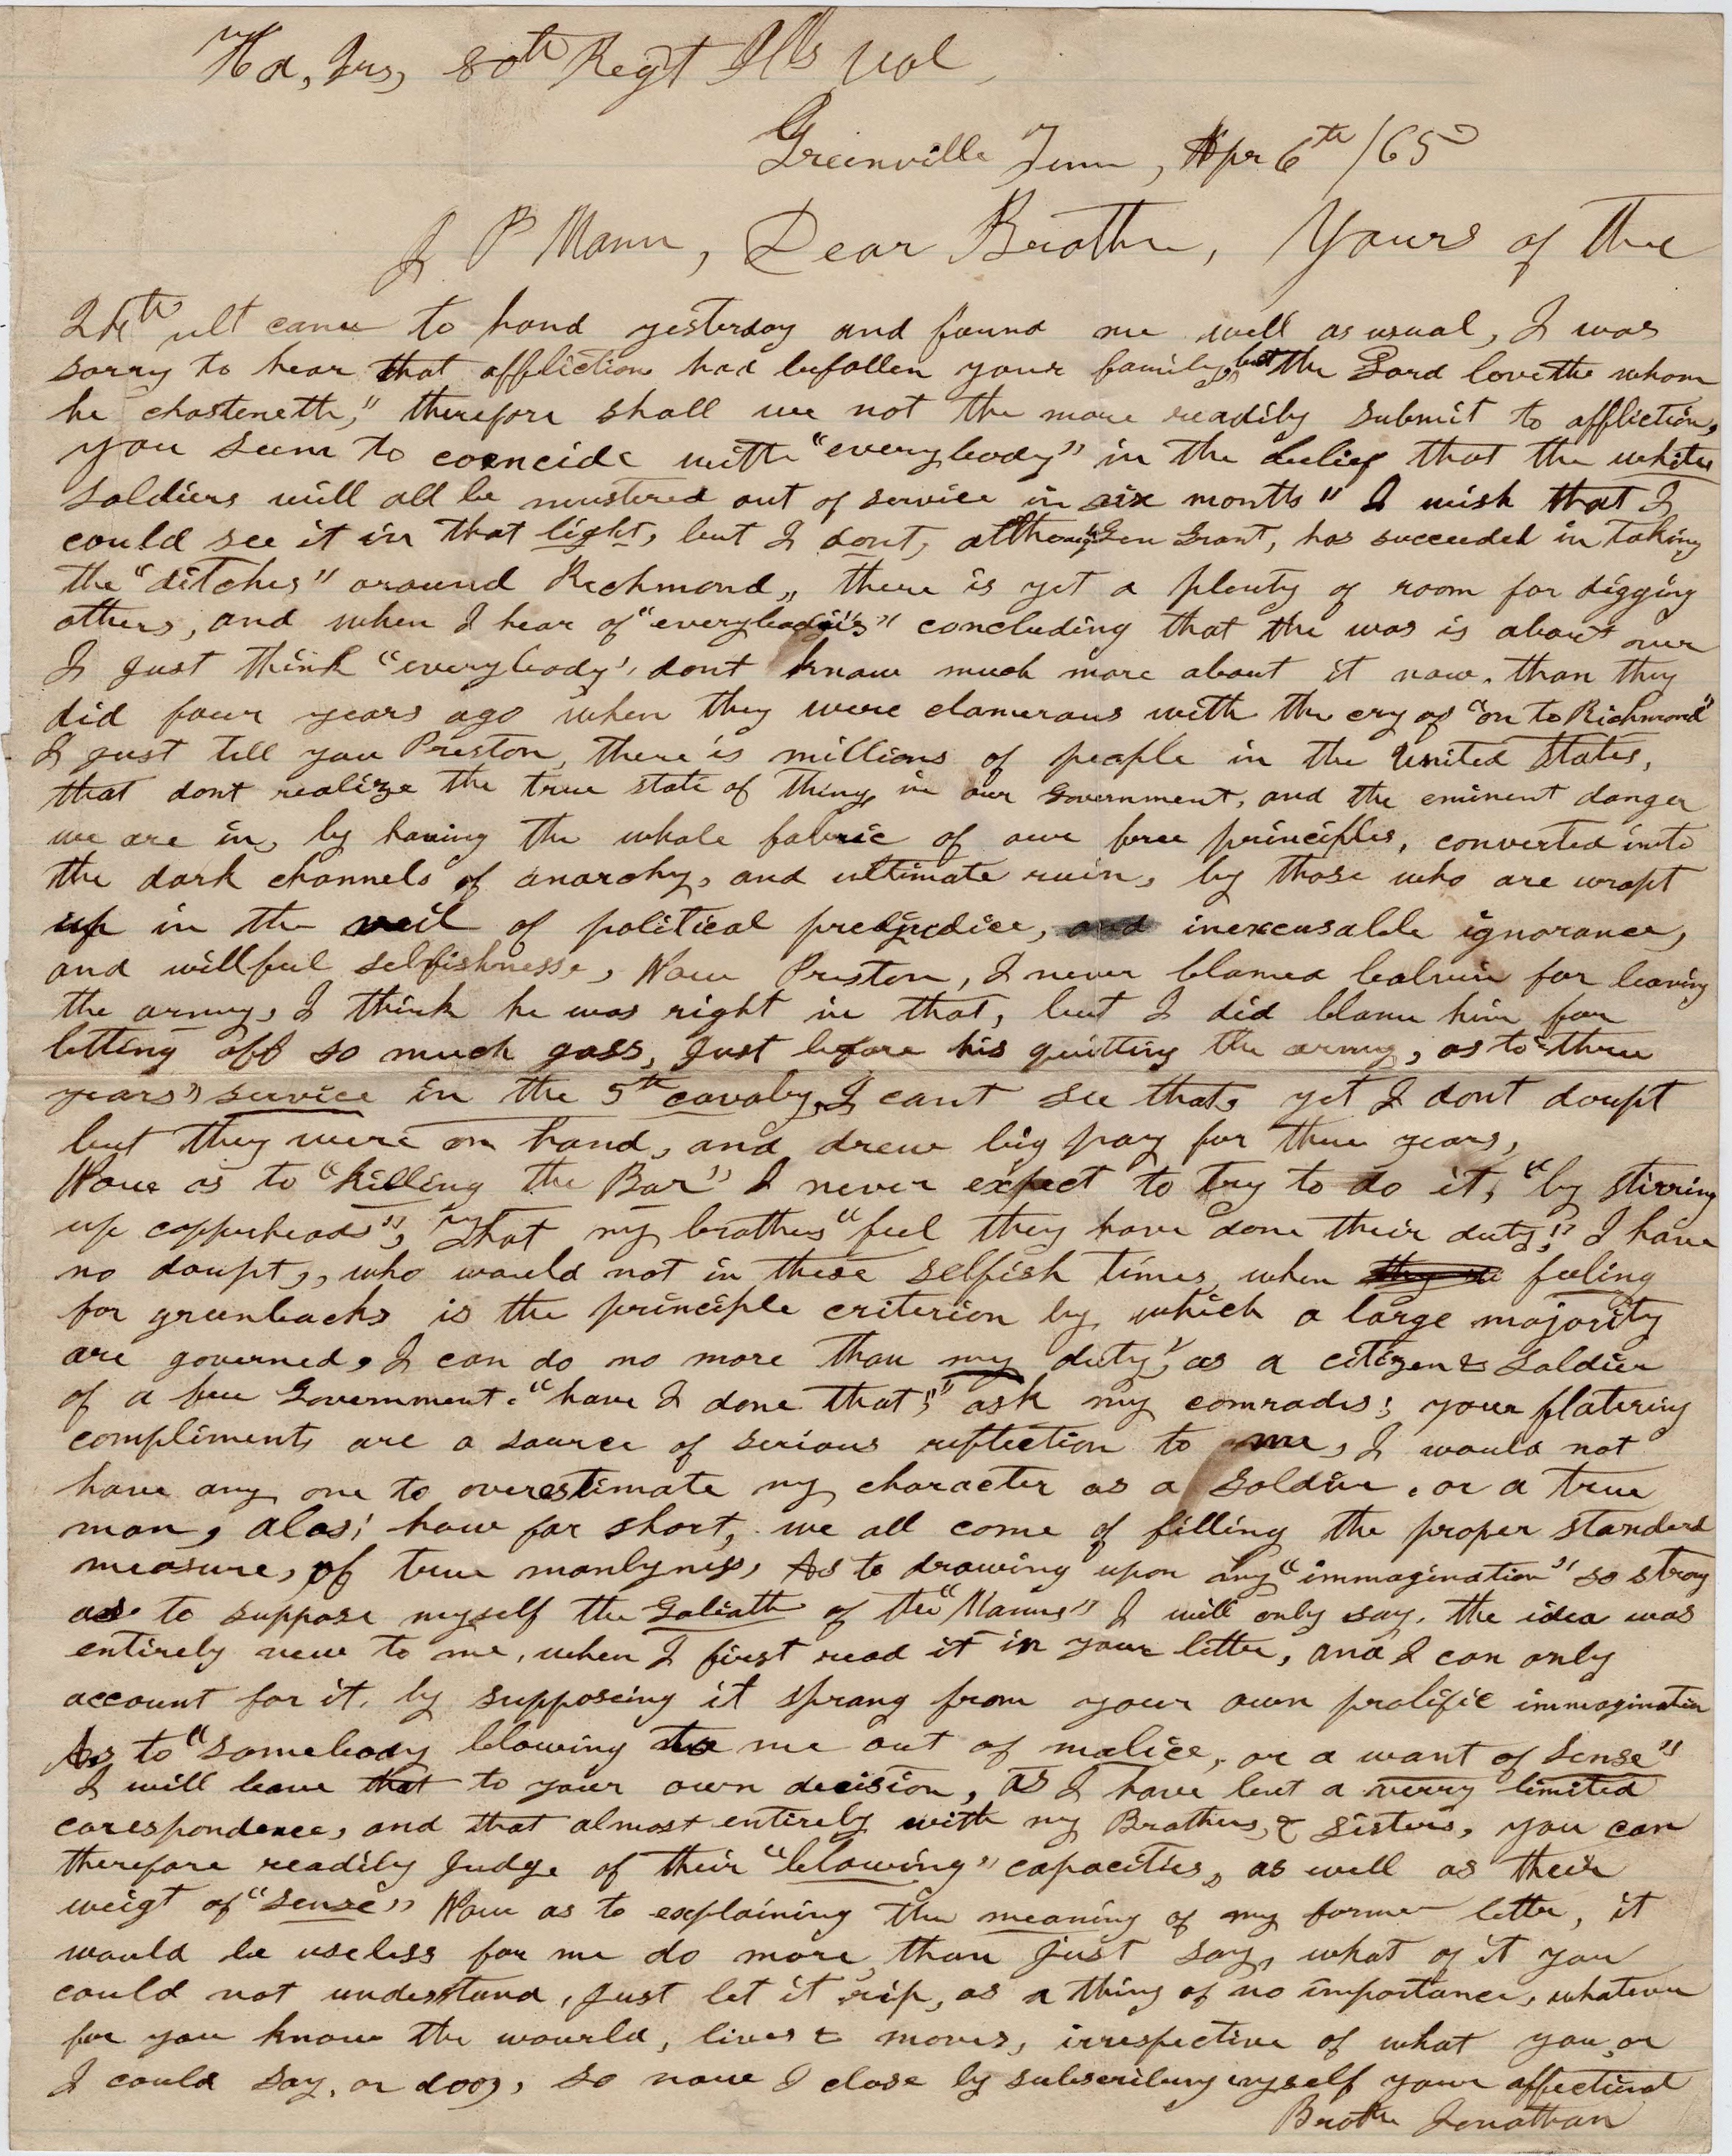 Hd, Qrs, 80th Regt Ills Vol,
Greenville Tenn, Apr 6th /65
J P Mann, Dear Brother, Yours of the
24th ult came to hand yesterday and found me well as usual, I was
sorry to hear that affliction had befallen your family, but "the Lord loveth whom
he chasteneth," therefore shall we not the more readily submit to affliction,
you seem to coencide with "everybody" in the belief that the white
soldiers will all be mustered out of service in six months" I wish that I
could see it in that light, but I dont, although Gen Grant, has succeeded in taking
the "ditches" around Richmond,, there is yet a plenty of room for digging
others, and when I hear of "everybody's" concluding that the war is about over
I Just think "everybody", dont know much more about it now, than they
did four years ago when they were clamerous with the cry of "on to Richmond"
I just tell you Preston, there is millions of people in the United States,
that dont realize the true state of things in our Government, and the eminent danger
we are in, by having the whole fabric of our free principles, converted into
the dark channels of anarchy, and ultimate ruin, by those who are wrapt
up in the veil of political predjudice, and inexcusable ignorance,
and willful selfishnesse, Now Preston, I never blamed Calvin for leaving
the army, I think he was right in that, but I did blame him for
letting off so much gass, Just before his quitting the army, as to "three
years" service in the 5th cavalry, I cant see that, yet I dont doupt
but they were on hand, and drew big pay for three years,
Now as to "killing the Bar" I never expect to try to do it, "by stirring
up copperheads", That my brothers "feel they have done their duty," I have
no doupt,, who would not in these selfish times, when feeling
for greenbacks is the principle criterion by which a large majority
are governed, I can do no more than my duty, as a citizen & Soldier
of a free Government. "have I done that," ask my comrades; your flatering
compliments are a source of serious reflection to me, I would not
have any one to overestimate my character as a Soldier, or a true
man, alas; how far short, we all come of filling the proper standerd
measure, of true manlyness, As to drawing upon my "immagination" so strong
as to suppose myself the Goliath of the "Manns" I will only say, the idea was
entirely new to me, when I first read it in your letter, and I can only
account for it, by supposeing it sprang from your own prolific immagination
As to "somebody blowing to me out of malice, or a want of sense"
I will leave that to your own decision, as I have but a verry limited
corespondence, and that almost entirely with my Brothers, & Sisters, you can
therefore readily Judge of their "blowing" capacities, as well as their
weigt of "sense" Now as to explaining the meaning of my former letter, it
would be useless for me do more, than Just say, what of it you
could not understand, Just let it rip, as a thing of no importance, whatever
for you know the wourld, lives & moves, irrespective of what you, or
I could say, or doo, so now I close by subscribing myself your affectinat
Brother Jonathan